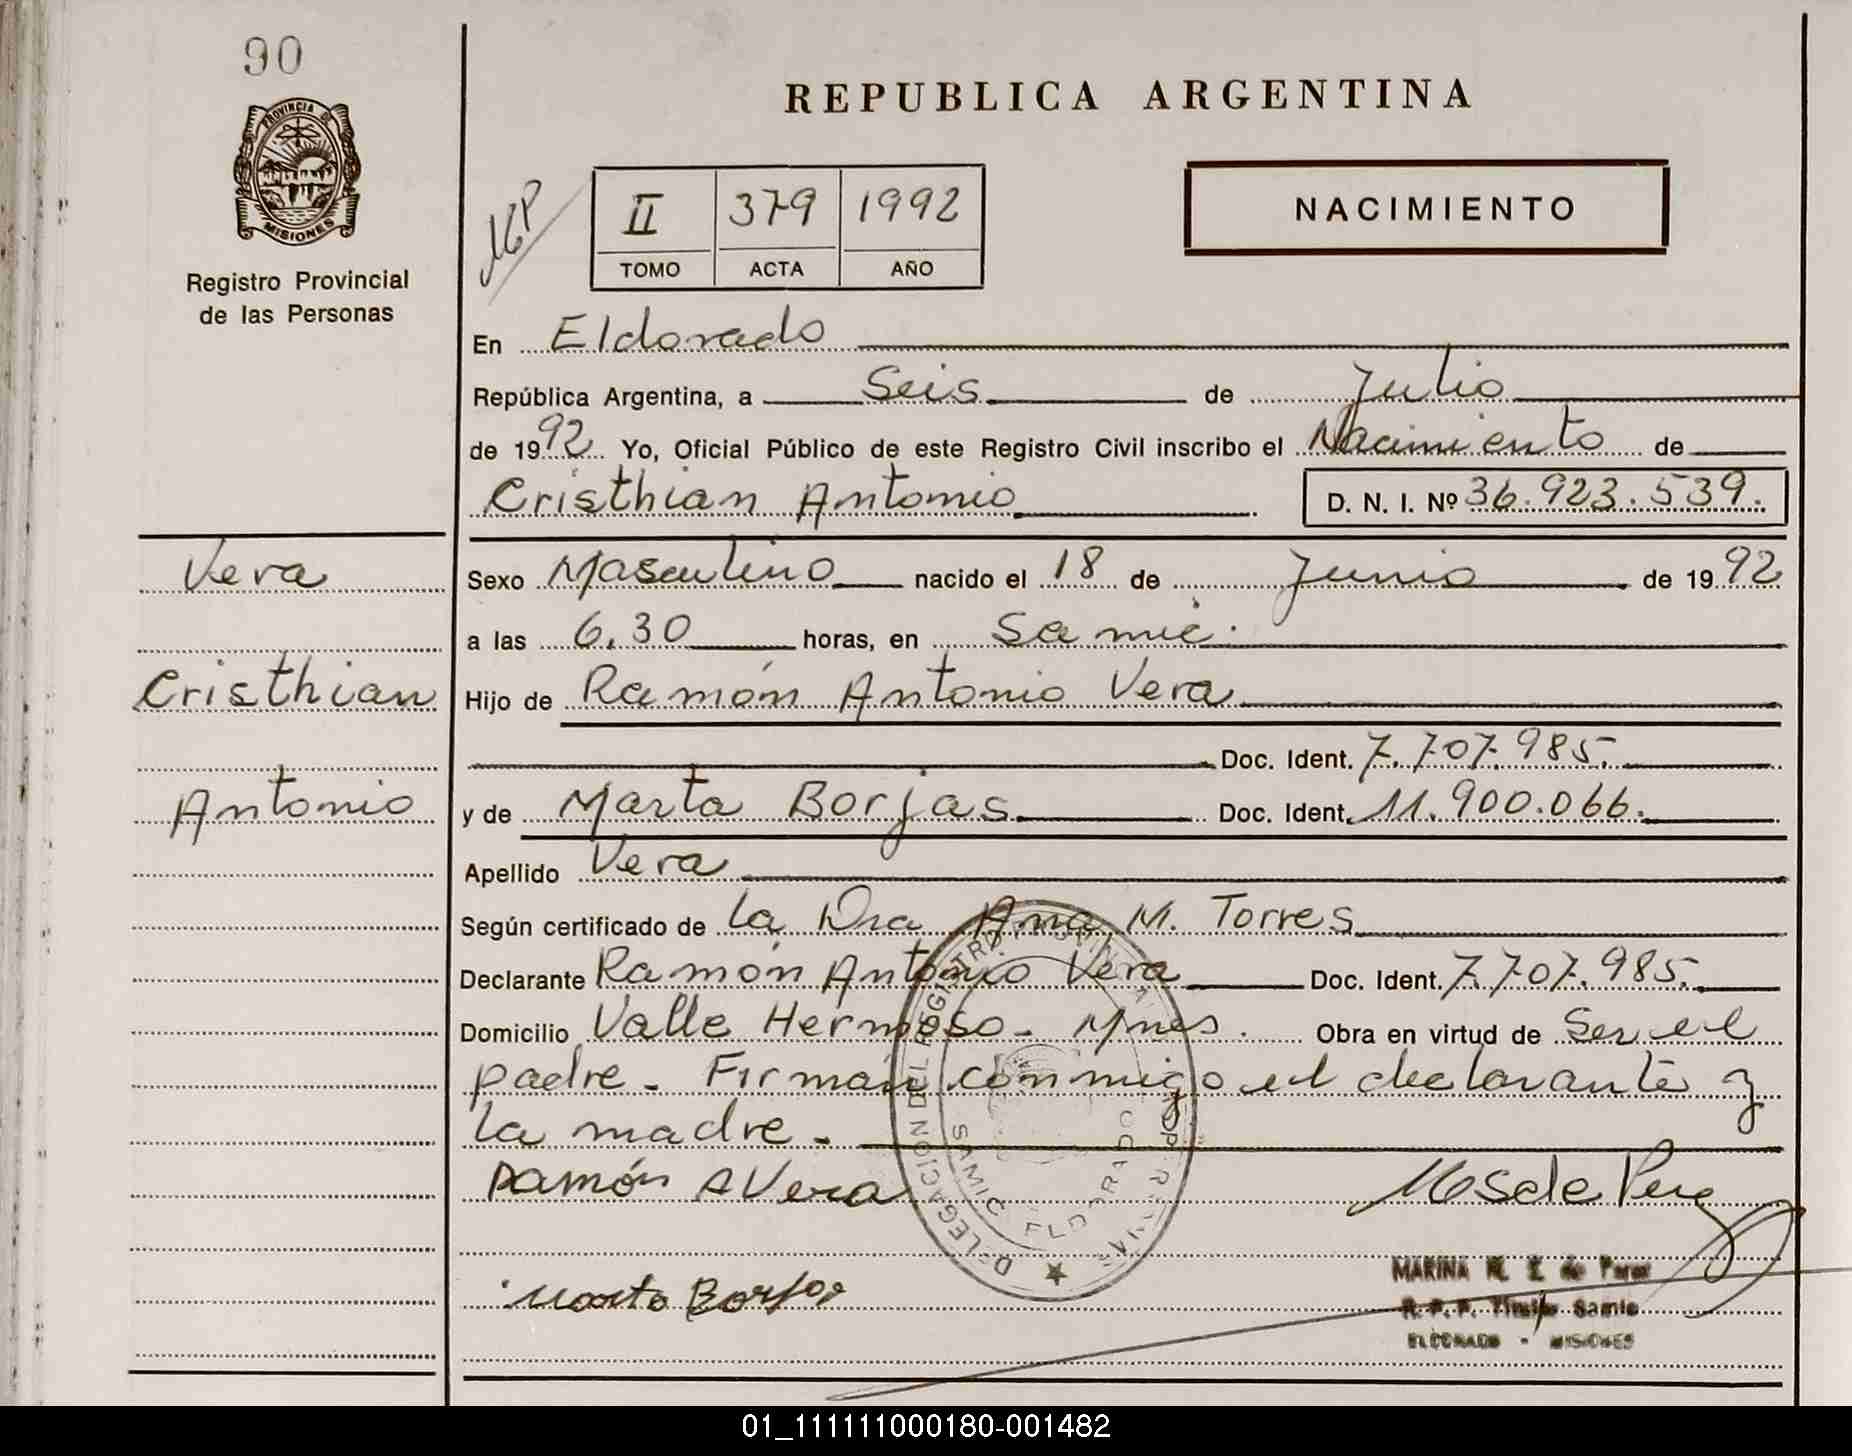 90
REPUBLICA ARGENTINA
PROVINCIA DE
MISIONES
Registro Provincial
de las Personas
II 379 1992
TOMO ACTA AÑO
NACIMIENTO
En Eldorado
República Argentina, a Seis de Julio
de 1992 Yo, Oficial Público de este Registro Civil inscribo el Nacimiento de
Cristhian Antonio D. N. I. Nº 36.923.539.
Vera
Cristhian
Antonio
Sexo Masculino nacido el 18 de Junio de 1992
a las 6,30 horas, en Samic.
Hijo de Ramón Antonio Vera
Doc. Ident. 7.707.985.
y de Marta Borjas Doc. Ident. 11.900.066.
Apellido Vera
Según certificado de la Dra Ana M. Torres
Declarante Ramón Antonio Vera Doc. Ident. 7.707.985.
Domicilio Valle Hermoso - Mnes. Obra en virtud de Ser el
padre - Firman conmigo el declarante y
la madre -
Ramón A Vera
Marta Borjas
DELEGACION DEL REGISTRO
SAMIC ELDORADO
MARINA
ELDORADO - MISIONES
01_111111000180-001482